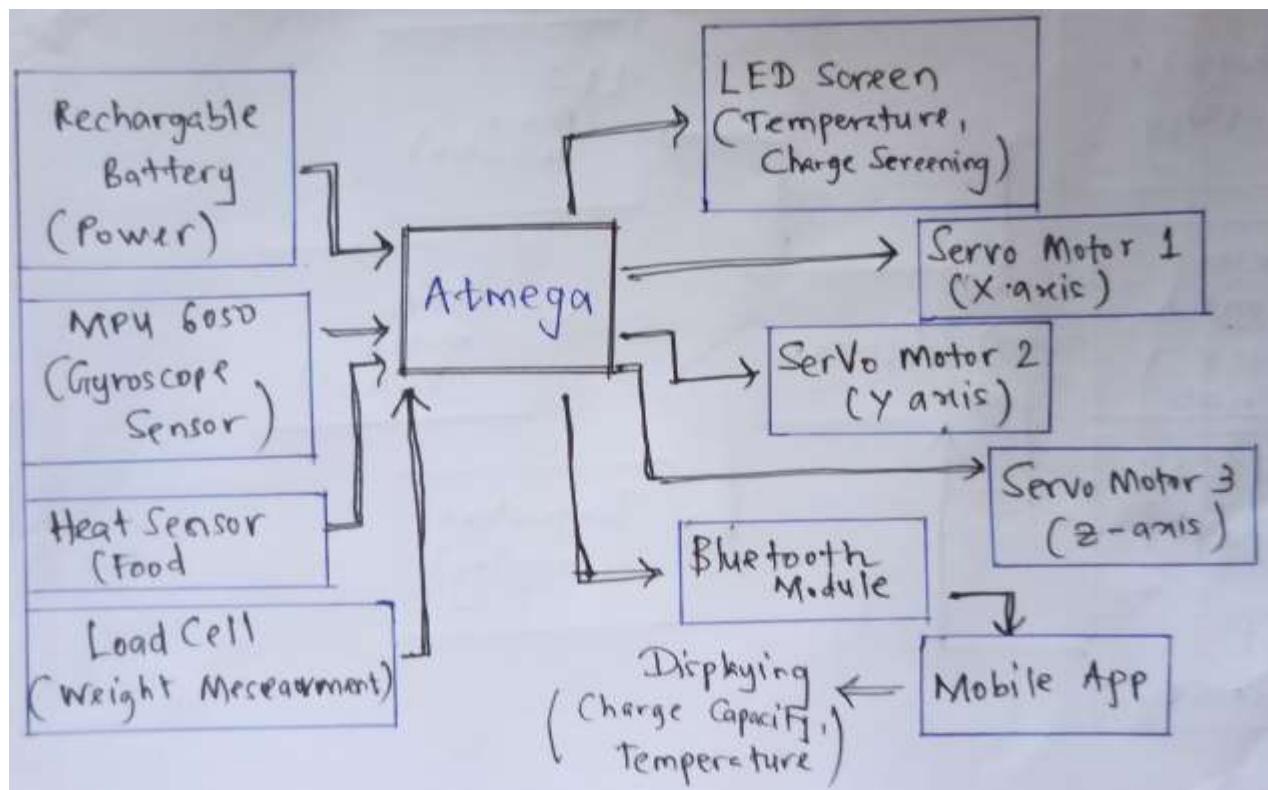 Rechargable
Battery
(Power)
MPU 6050
(Gyroscope
Sensor)
Heat Sensor
(Food
Load Cell
(Weight
Atmega
LED Screen
(Temperature,
Charge Screening)
Servo Motor 1
(X-axis)
Servo Motor 2
(Y axis)
Servo Motor 3
(Z-axis)
Bluetooth
Module
Mobile App
Displying
(Charge Capacity,
Temperature)